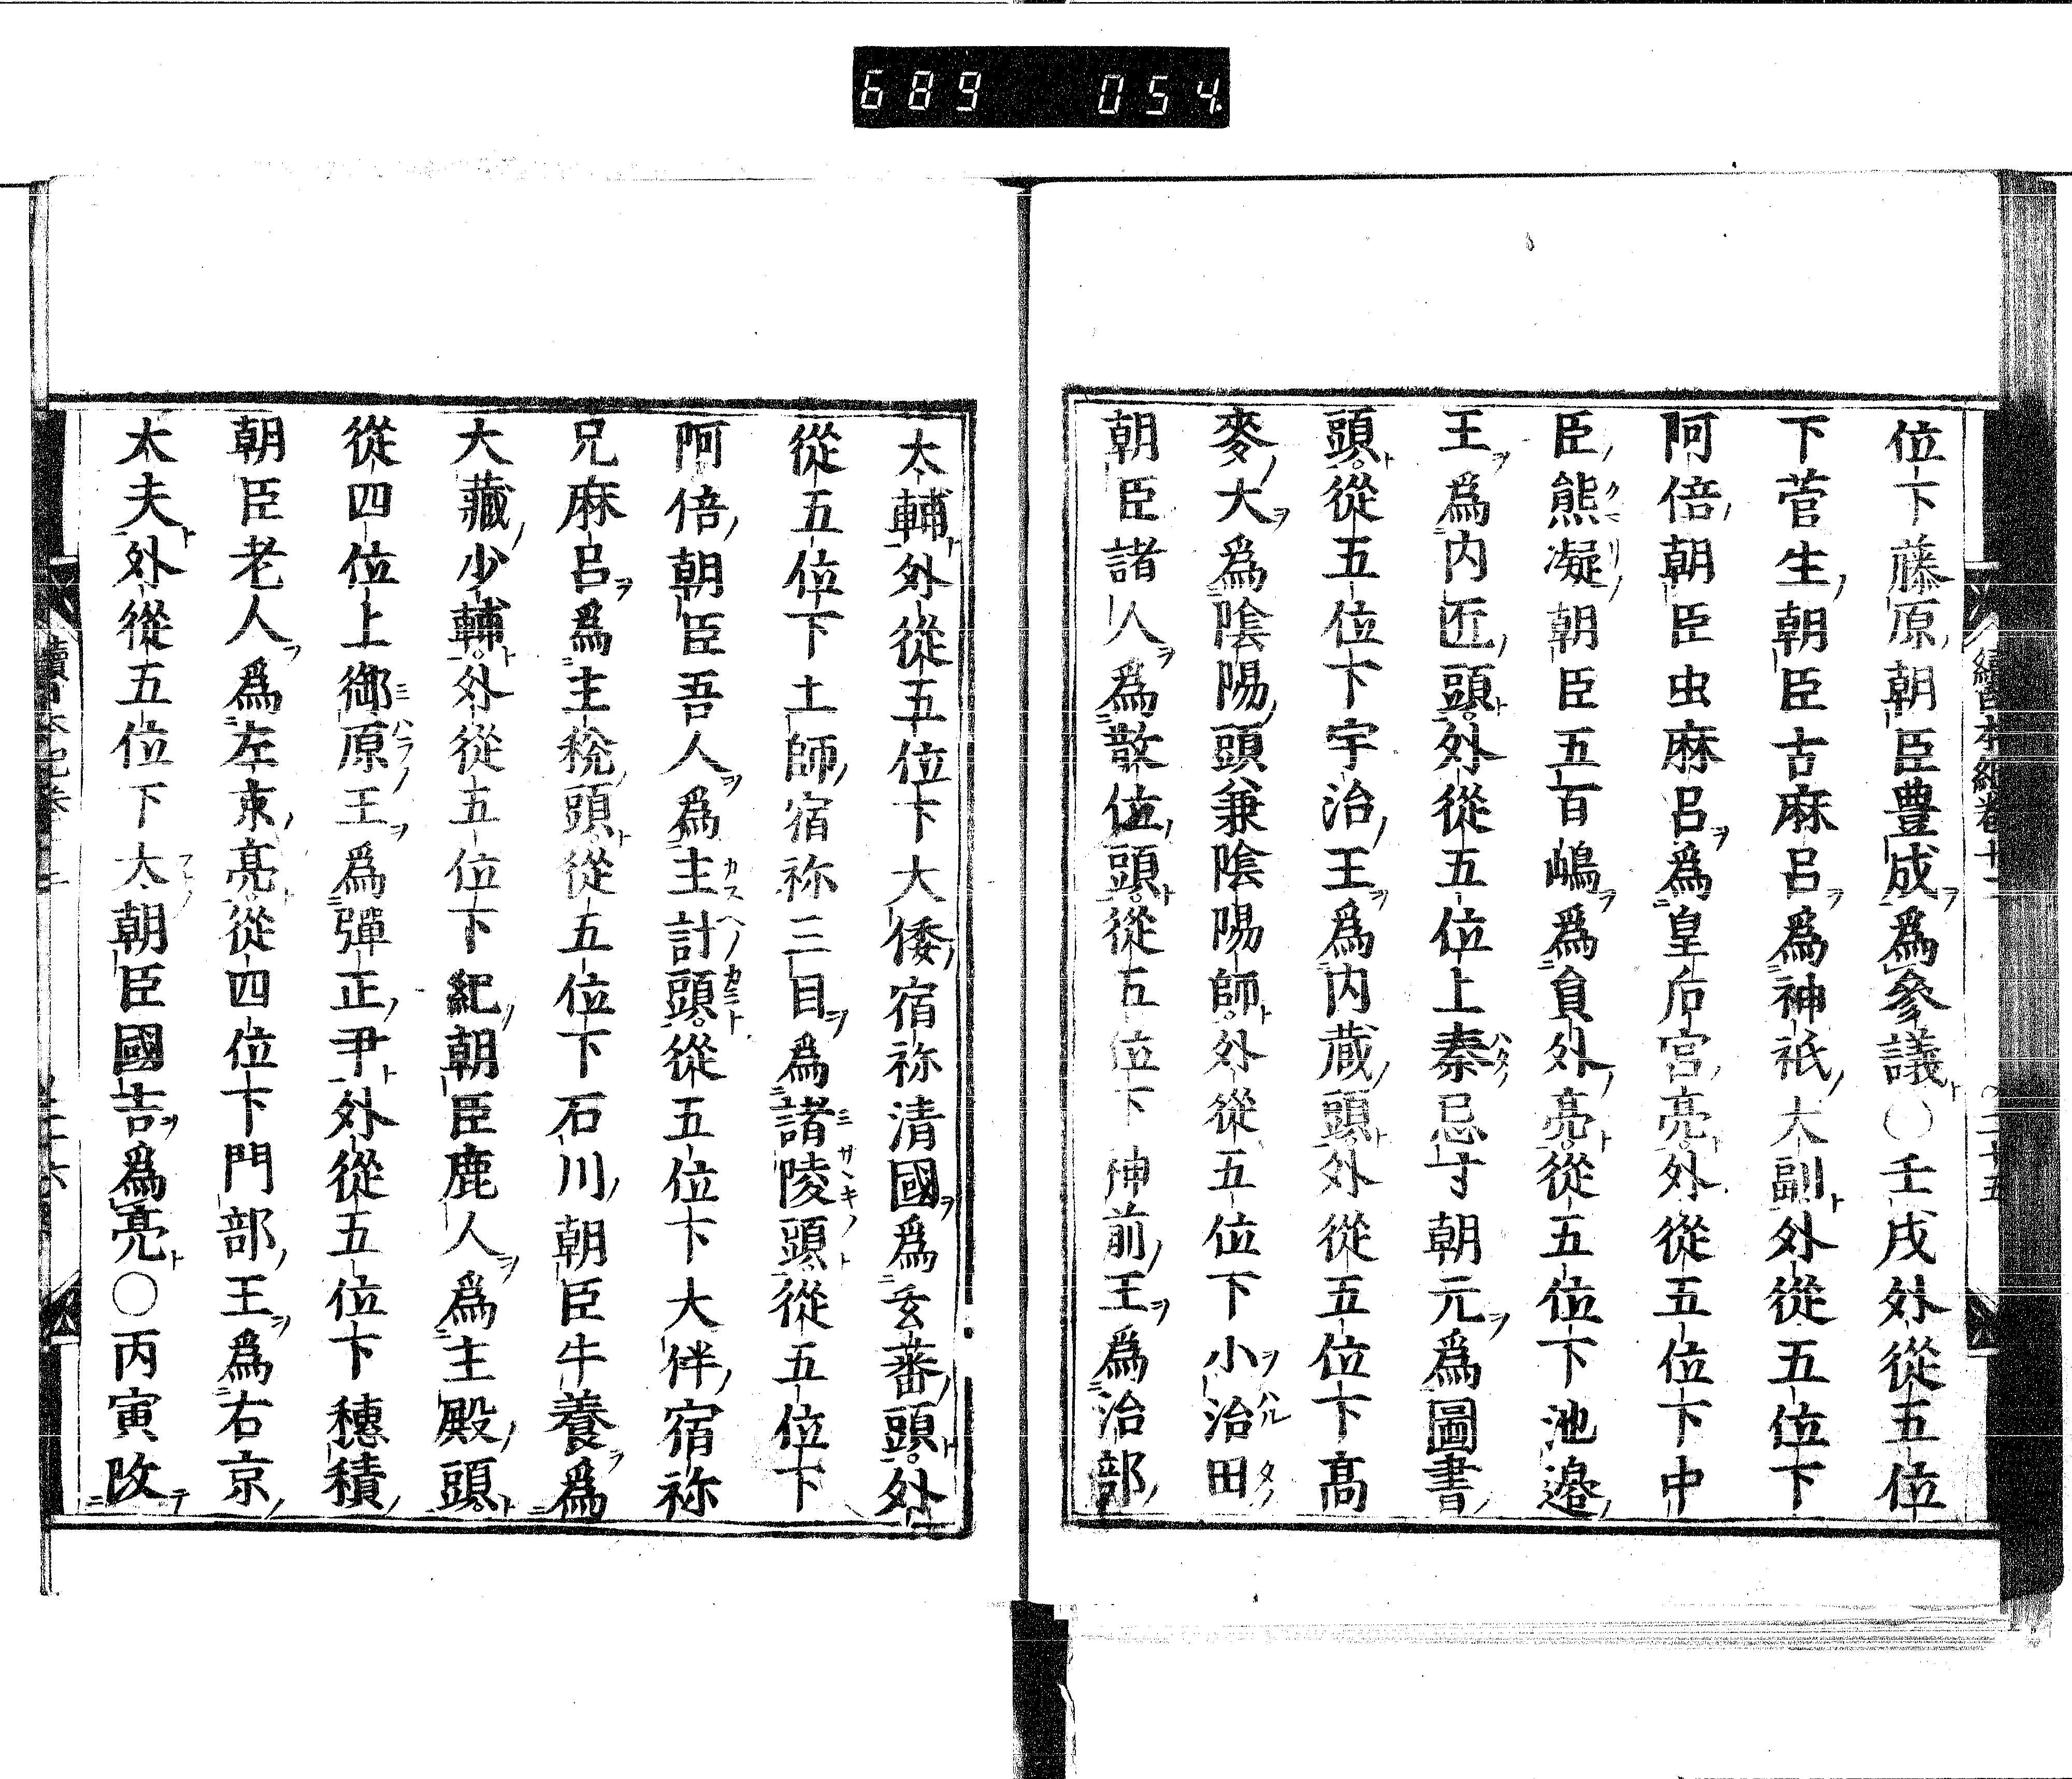 689 054
續日本紀卷十二 ○二十五
位下藤原朝臣豊成爲參議○壬戌外從五位
下菅生朝臣古麻呂爲神祇大副外從五位下
阿倍朝臣虫麻呂爲皇后宮亮外從五位下中
臣熊凝朝臣五百嶋爲員外亮從五位下池邉
王爲内匠頭外從五位上秦忌寸朝元爲圖書
頭從五位下宇治王爲内蔵頭外從五位下髙
麥大爲陰陽頭兼陰陽師外從五位下小治田
朝臣諸人爲散位頭從五位下神前王爲治部
太輔外從五位下大倭宿祢清國爲玄蕃頭外
從五位下土師宿祢三目爲諸陵頭從五位下
阿倍朝臣吾人爲主計頭從五位下大伴宿祢
兄麻呂爲主税頭從五位下石川朝臣牛養爲
大藏少輔外從五位下紀朝臣鹿人爲主殿頭
從四位上御原王爲彈正尹外從五位下穗積
朝臣老人爲左京亮從四位下門部王爲右京
太夫外從五位下太朝臣國吉爲亮○丙寅改